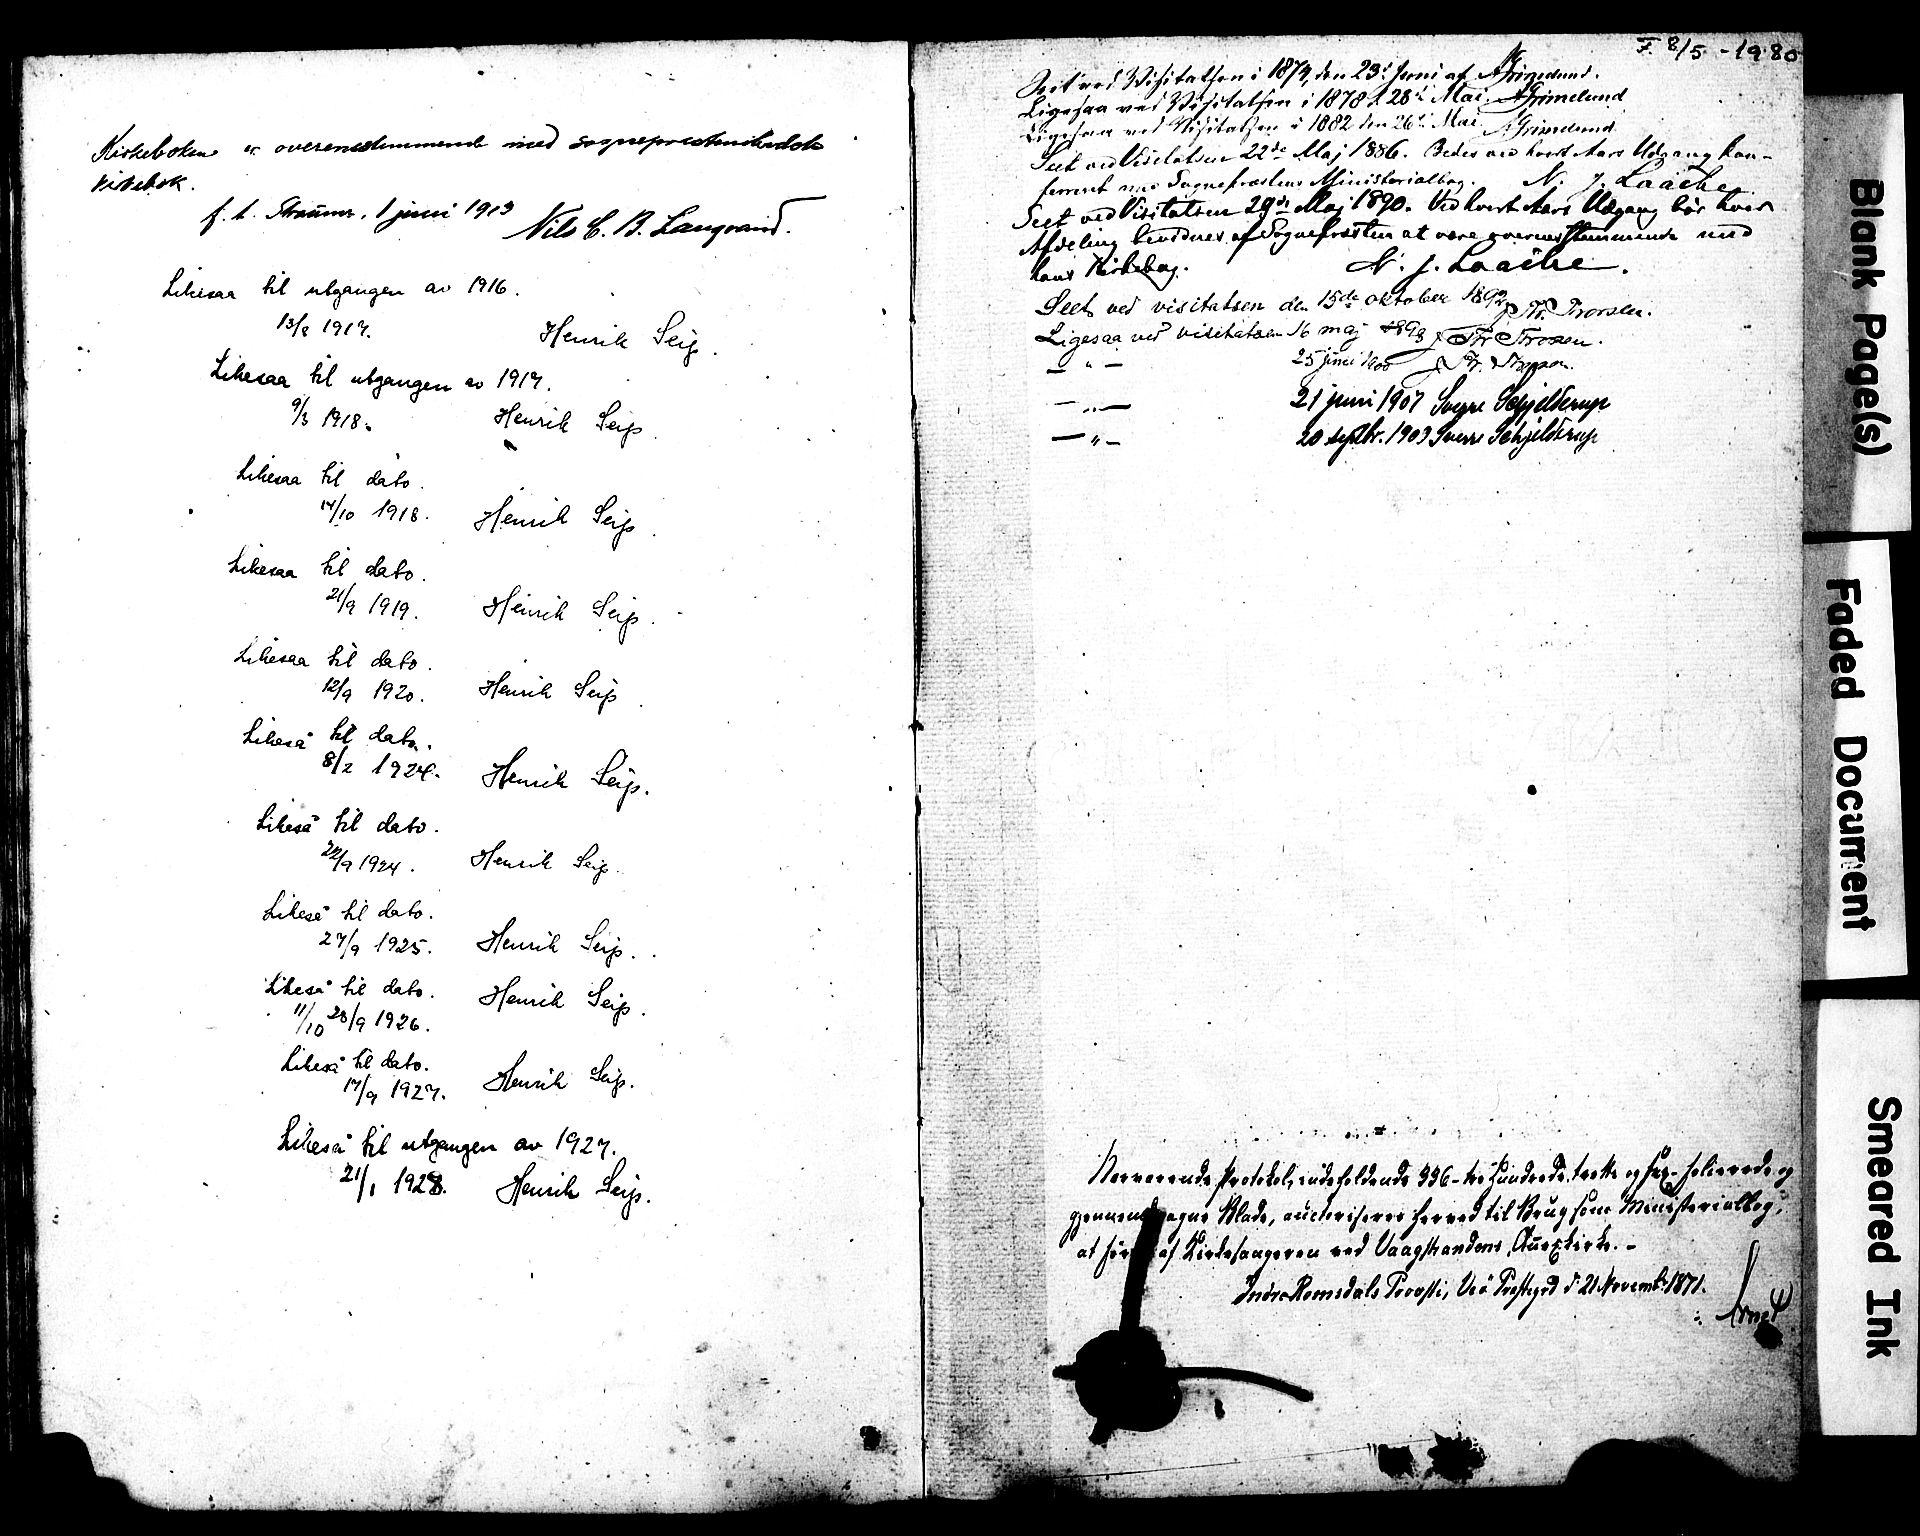 Kirkeboken er overensstemmende med sogneprestembedets
kirkebok.
f. t. Straume, 1 juni 1913
Nils C. B. Langvand.
Likesaa til utgangen av 1916.
13/8 1917. Henrik Seip.
Likesaa til utgangen av 1917.
9/3 1918. Henrik Seip
Likesaa til dato.
14/10 1918. Henrik Seip.
Likesaa til dato.
21/9 1919. Henrik Seip.
Likesaa til dato.
12/9 1920. Henrik Seip.
Likeså til dato.
8/2 1924. Henrik Seip.
Likeså til dato.
22/9 1924. Henrik Seip.
Likeså til dato.
27/9 1925. Henrik Seip.
Likeså til dato. Henrik Seip.
11/10 28/9 1926.
Likeså til dato.
17/9 1927. Henrik Seip.
Likeså til utgangen av 1927.
21/1 1928. Henrik Seip.
8/5 - 1980
Seet ved Visitatsen i 1874, den 23de Juni af AGrimelund.
Ligesaa ved Visitatsen i 1878 d 28de Mai. AGrimelund
Ligesaa ved Visitatsen i 1882 den 26de Mai. AGrimelund
Seet ved Visitatsen 22de Maj 1886. Bedes ved hvert Aars Udgang kon-
fereret med Sognepræstens Ministerialbog. N. J. Laache.
Seet ved Visitatsen 29de Maj 1890. Ved hvert Aars Udgang bør hver
Afdeling bevidnes af Sognepræsten at være overensstemmende med
hans Kirkebog. N. J. Laache.
Seet ved visitatsen den 15de oktober 1892 Tr. Trorsen.
Ligesaa ved visitatsen 16 maj
— " — 25 juni 1900
— " — 21 juni 1907 Sverre Schjelderup
— " — 20 septbr. 1909 Sverre Schjelderup
Nærværende Protokol, indeholdende 336 - tre Hundrede, trette og sex - folierede og
gjennemdragne Blade, auctoriseres herved til Brug som Ministerialbog,
at føres af Kirkesangeren ved Vaagstrandens Annexkirke. -
Indre Romsdals Provsti, Veø Prestegrd d. 21 Novembr 1871.
Blank Page(s)
Faded Document
Smeared Ink